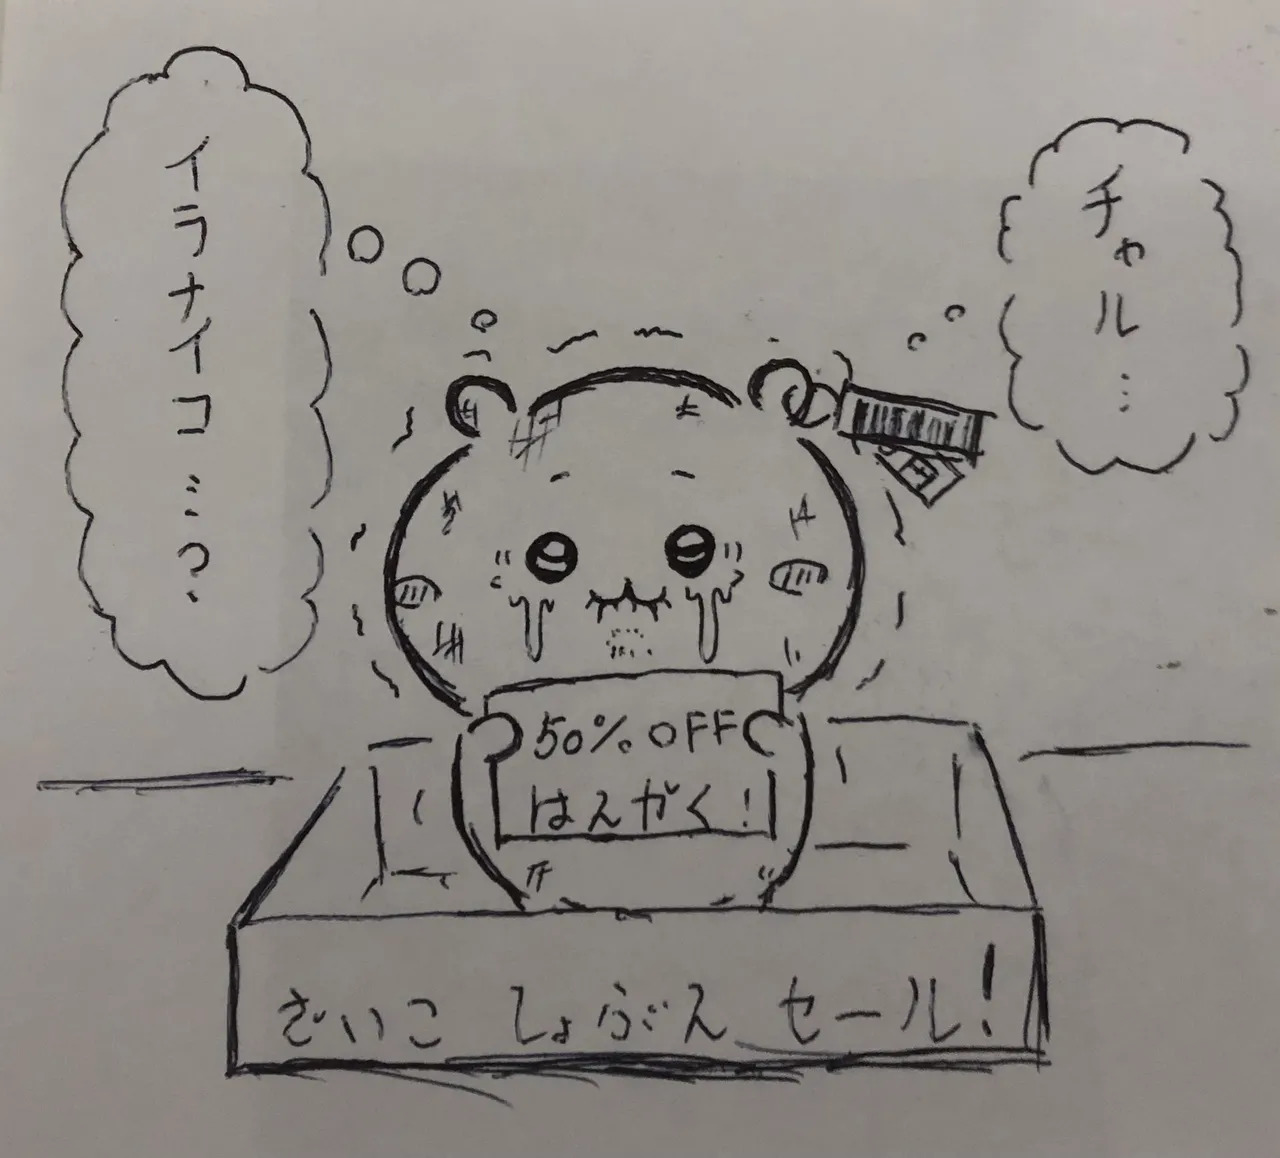 チャル…
イラナイコ…?
50% OFF
はんがく!
ざいこ しょぶん セール!